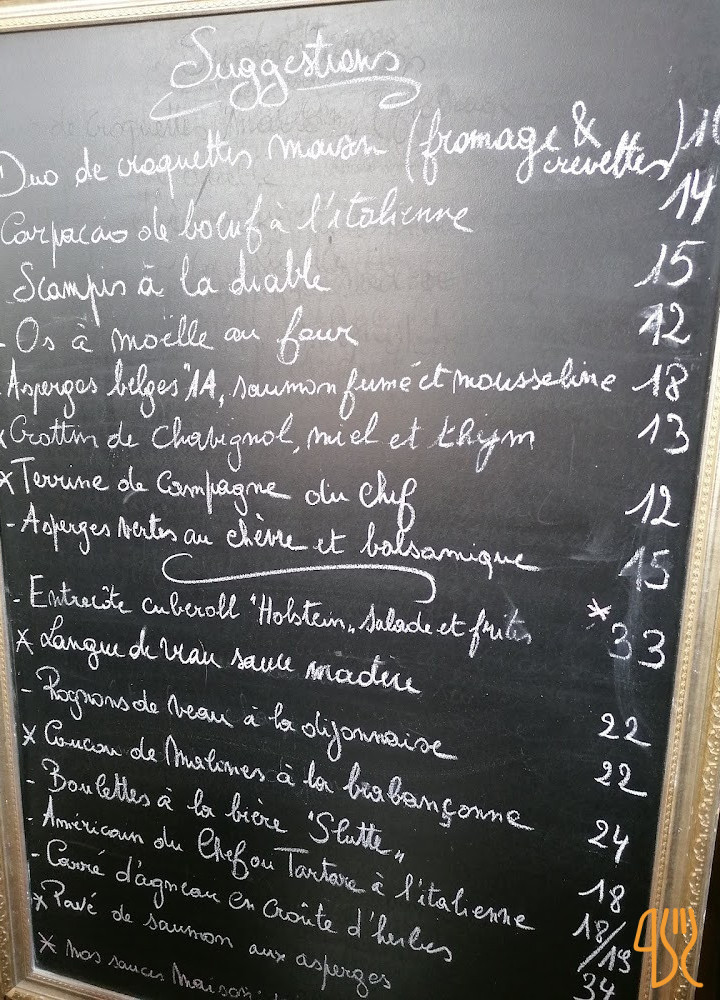 Suggestions
Duo de croquettes maison (fromage & crevettes)
Carpaccio de boeuf à l'italienne 14
Scampis à la diable 15
- Os à moëlle au four 12
- Asperges belges "AA, saumon fumé et mousseline 18
x Crottin de Chavignol, miel et thym 13
x Terrine de Campagne du chef 12
- Asperges vertes au chèvre et balsamique 15
- Entrecôte cuberoll "Holstein„ salade et frites * 33
x Langue de veau sauce madère 22
- Rognons de veau à la dijonnaise 22
x Coucou de Malines à la brabançonne 24
- Boulettes à la bière "Slutte„ 18
- Américain du Chef ou Tartare à l'italienne 18/19
- Carré d'agneau en croûte d'herbes 34
x Pavé de saumon aux asperges
* nos sauces Maison: